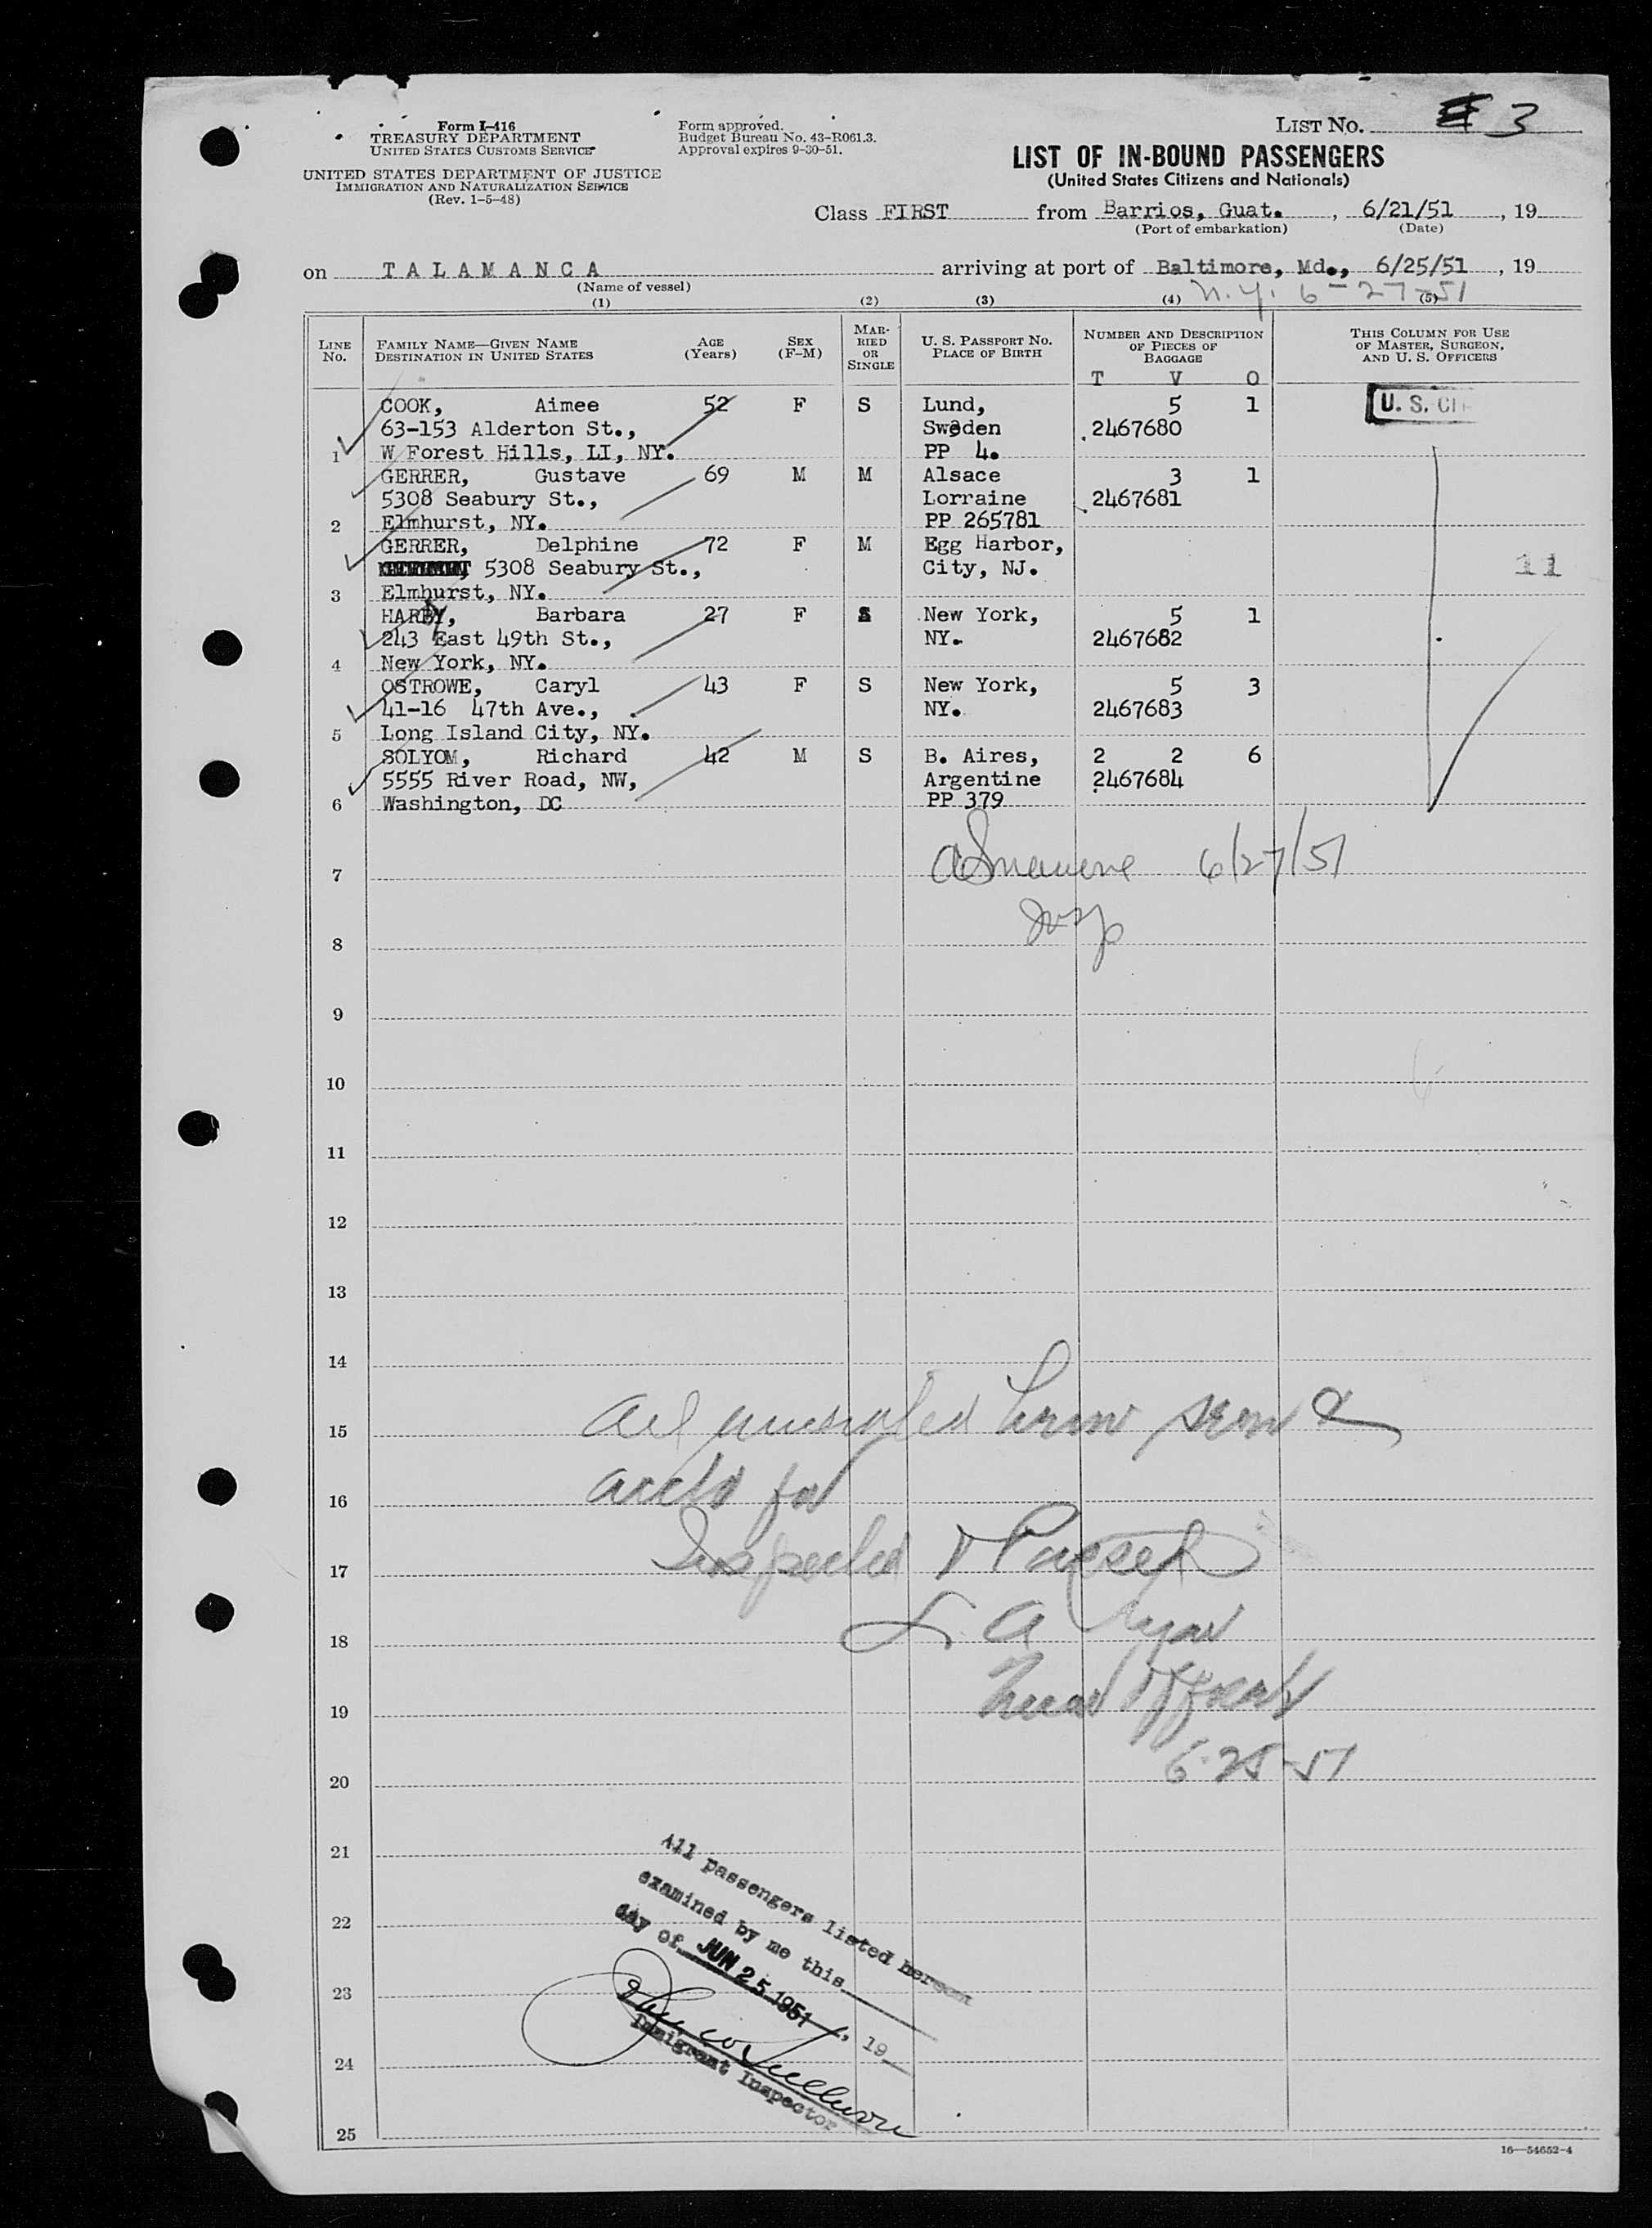 Form I-416
TREASURY DEPARTMENT
UNITED STATES CUSTOMS SERVICE
UNITED STATES DEPARTMENT OF JUSTICE
IMMIGRATION AND NATURALIZATION SERVICE
(Rev. 1-5-48)
Form approved.
Budget Bureau No. 43-R061.3.
Approval expires 9-30-51.
LIST NO. 3
LIST OF IN-BOUND PASSENGERS
(United States Citizens and Nationals)
Class FIRST from Barrios, Guat. , 6/21/51 , 19
(Port of embarkation) (Date)
on TALAMANCA arriving at port of Baltimore, Md., 6/25/51 , 19
(Name of vessel)
N.Y. 6-27-51
(1) (2) (3) (4) (5)
LINE No. FAMILY NAME—GIVEN NAME DESTINATION IN UNITED STATES AGE (Years) SEX (F-M) MARRIED OR SINGLE U. S. PASSPORT NO. PLACE OF BIRTH NUMBER AND DESCRIPTION OF PIECES OF BAGGAGE THIS COLUMN FOR USE OF MASTER, SURGEON, AND U. S. OFFICERS
T V O
COOK, Aimee 52 F S Lund, 5 1 U. S. CI
63-153 Alderton St., Sweden 2467680
1 W Forest Hills, LI, NY. PP 4.
GERRER, Gustave 69 M M Alsace 3 1
5308 Seabury St., Lorraine 2467681
2 Elmhurst, NY. PP 265781
GERRER, Delphine 72 F M Egg Harbor,
5308 Seabury St., City, NJ. 11
3 Elmhurst, NY.
HARDY, Barbara 27 F S New York, 5 1
243 East 49th St., NY. 2467682
4 New York, NY.
OSTROWE, Caryl 43 F S New York, 5 3
41-16 47th Ave., NY. 2467683
5 Long Island City, NY.
SOLYOM, Richard 42 M S B. Aires, 2 2 6
5555 River Road, NW, Argentine 2467684
6 Washington, DC PP 379
7 6/27/51
Insp
8
9
10
11
12
13
14
15 All manifested hereon seen &
16 acctd for
17 Inspected & Passed
18 L A
19
6-25-51
20
21
22
23
24
25
All passengers listed hereon
examined by me this
day of JUN 25 1951, 19
Immigrant Inspector
16—54652-4